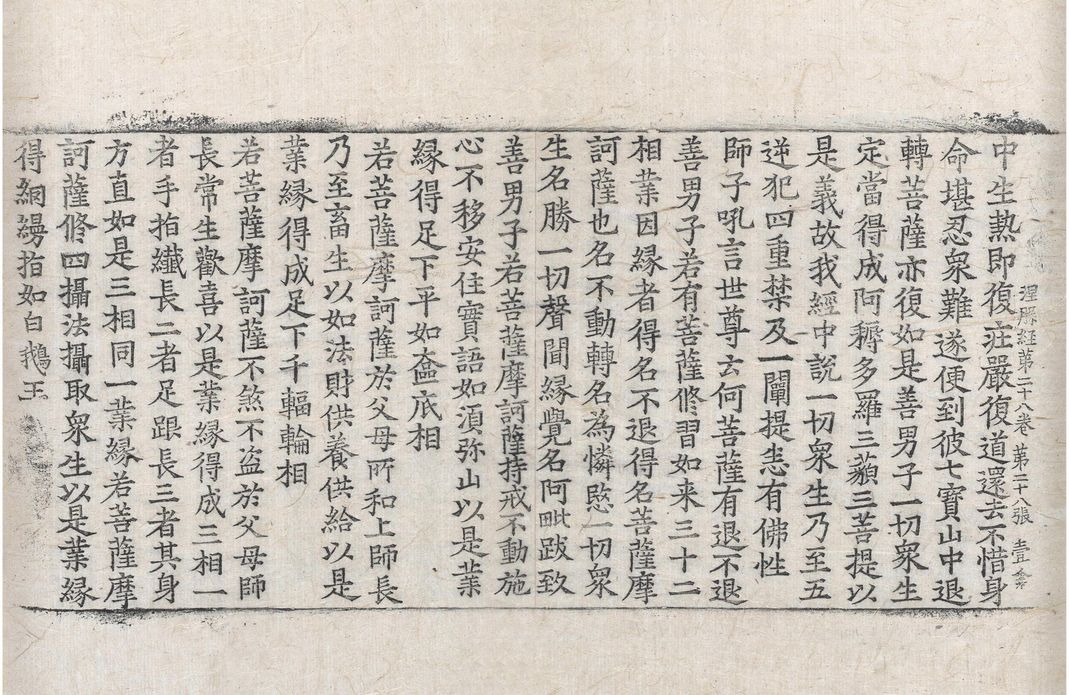 涅槃經第二十八卷 第二十八張 壹
中生熱即復莊嚴復道還去不惜身
命堪忍衆難遂便到彼七寶山中退
轉菩薩亦復如是善男子一切衆生
定當得成阿耨多羅三藐三菩提以
是義故我經中說一切衆生乃至五
逆犯四重禁及一闡提悉有佛性
師子吼言世尊云何菩薩有退不退
善男子若有菩薩修習如來三十二
相業因緣者得名不退得名菩薩摩
訶薩也名不動轉名為憐愍一切衆
生名勝一切聲聞緣覺名阿毗跋致
善男子若菩薩摩訶薩持戒不動施
心不移安住實語如湏弥山以是業
緣得足下平如奩底相
若菩薩摩訶薩於父母所和上師長
乃至畜生以如法財供養供給以是
業緣得成足下千輻輪相
若菩薩摩訶薩不煞不盜於父母師
長常生歡喜以是業緣得成三相一
者手指纖長二者足跟長三者其身
方直如是三相同一業緣若菩薩摩
訶薩修四攝法攝取衆生以是業緣
得網縵指如白鵝王